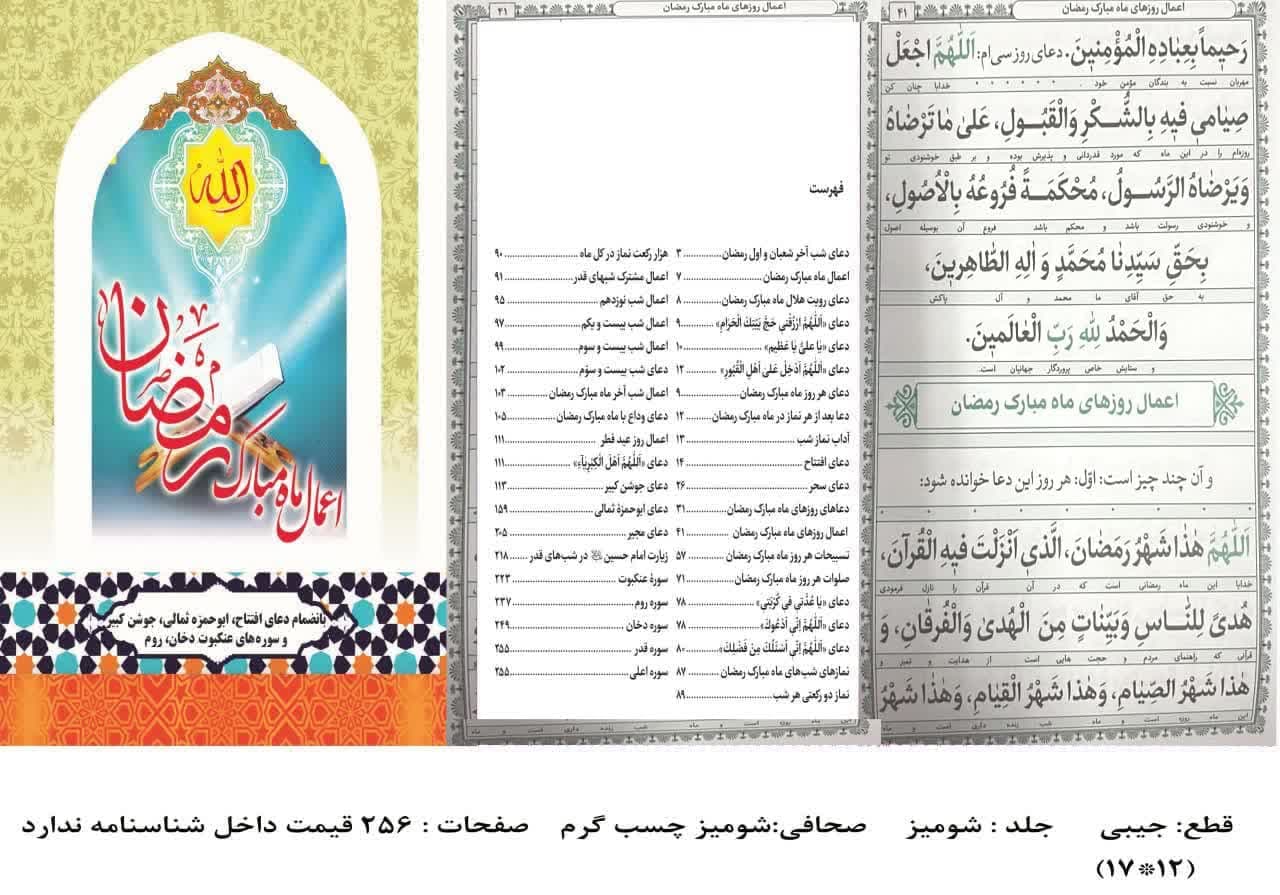 الله
اعمال ماه مبارک رمضان
بانضمام دعای افتتاح، ابوحمزه ثمالی، جوشن کبیر
و سوره‌های عنکبوت دخان، روم
۴۱ اعمال روزهای ماه مبارک رمضان
فهرست
دعای شب آخر شعبان و اول رمضان ۳
اعمال ماه مبارک رمضان ۷
دعای رویت هلال ماه مبارک رمضان ۸
دعای «اَللّٰهُمَّ ارْزُقْنی حَجَّ بَیْتِكَ الْحَرٰامِ» ۹
دعای «یٰا عَلیُّ یٰا عَظیمِ» ۱۰
دعای «اَللّٰهُمَّ اَدْخِلْ عَلیٰ اَهْلِ الْقُبُورِ» ۱۲
دعای هر روز ماه مبارک رمضان ۹
دعا بعد از هر نماز در ماه مبارک رمضان ۱۲
آداب نماز شب ۱۳
دعای افتتاح ۱۴
دعای سحر ۲۶
دعاهای روزهای ماه مبارک رمضان ۳۱
اعمال روزهای ماه مبارک رمضان ۴۱
تسبیحات هر روز ماه مبارک رمضان ۵۷
صلوات هر روز ماه مبارک رمضان ۷۱
دعای «یٰا عُدَّتی فی کُرْبَتی» ۷۸
دعای «اَللّٰهُمَّ اِنّی اَدْعُوكَ» ۷۸
دعای «اَللّٰهُمَّ اِنّی اَسْئَلُكَ مِنْ فَضْلِكَ» ۸۰
نمازهای شب‌های ماه مبارک رمضان ۸۷
نماز دو رکعتی هر شب ۸۹
هزار رکعت نماز در کل ماه ۹۰
اعمال مشترک شبهای قدر ۹۱
اعمال شب نوزدهم ۹۵
اعمال شب بیست و یکم ۹۷
اعمال شب بیست و سوم ۹۹
دعای شب بیست و سوّم ۱۰۲
اعمال شب آخر ماه مبارک رمضان ۱۰۳
دعای وداع با ماه مبارک رمضان ۱۰۵
اعمال روز عید فطر ۱۱۱
دعای «اَللّٰهُمَّ اَهْلَ الْکِبْرِیٰآءِ» ۱۱۱
دعای جوشن کبیر ۱۱۳
دعای ابوحمزهٔ ثمالی ۱۵۹
دعای مجیر ۲۰۵
زیارت امام حسین در شب‌های قدر ۲۱۸
سورهٔ عنکبوت ۲۲۳
سوره روم ۲۳۷
سوره دخان ۲۴۹
سوره قدر ۲۵۵
سوره اعلی ۲۵۵
این ماه روزه است و ماه شب زنده داری است و ماه
۴۱ اعمال روزهای ماه مبارک رمضان
رَحیماً بِعِبٰادِهِ الْمُؤْمِنینَ. دعای روز سی‌ام: اَللّٰهُمَّ اجْعَلْ
مهربان نسبت به بندگان مؤمن خود . خدایا چنان کن
صِیٰامی فیهِ بِالشُّکْرِ وَالْقَبُولِ، عَلیٰ مٰا تَرْضٰاهُ
روزه‌ام را در این ماه که مورد قدردانی و پذیرش بوده و بر طبق خوشنودی تو
وَیَرْضٰاهُ الرَّسُولُ، مُحْکَمَةً فُرُوعُهُ بِالْاُصُولِ،
و خوشنودی رسولت باشد و محکم باشد فروع آن بوسیله اصول
بِحَقِّ سَیِّدِنٰا مُحَمَّدٍ وَ اٰلِهِ الطّٰاهِرینَ،
به حق آقای ما محمد و آل پاکش
وَالْحَمْدُ لِلّٰهِ رَبِّ الْعٰالَمینَ.
و ستایش خاص پروردگار جهانیان است.
اعمال روزهای ماه مبارک رمضان
و آن چند چیز است: اوّل: هر روز این دعا خوانده شود:
اَللّٰهُمَّ هٰذٰا شَهْرُ رَمَضٰانَ، الَّذی اَنْزَلْتَ فیهِ الْقُرْآنَ،
خدایا این ماه رمضانی است که در آن قرآن را نازل فرمودی
هُدیً لِلنّٰاسِ وَبَیِّنٰاتٍ مِنَ الْهُدیٰ وَالْفُرْقٰانِ، وَ
قرآنی که راهنمای مردم و حجت هایی است از هدایت و تمیز و
هٰذٰا شَهْرُ الصِّیٰامِ، وَهٰذٰا شَهْرُ الْقِیٰامِ، وَهٰذٰا شَهْرُ
این ماه روزه است و ماه شب زنده داری است و ماه
قطع: جیبی جلد : شومیز صحافی:شومیز چسب گرم صفحات : ۲۵۶ قیمت داخل شناسنامه ندارد
(۱۲*۱۷)